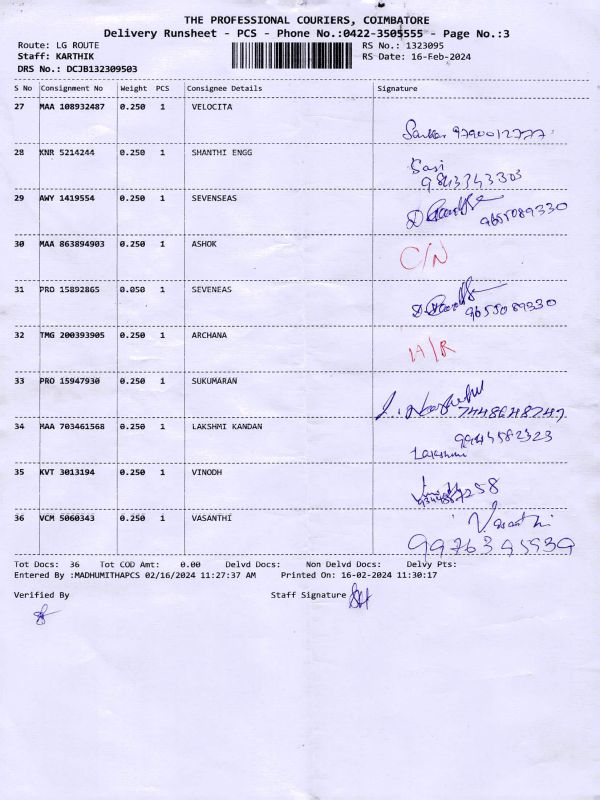 THE PROFESSIONAL COURIERS, COIMBATORE
Delivery Runsheet - PCS - Phone No.:0422-3505555 - Page No.:3
Route: LG ROUTE RS No.: 1323095
Staff: KARTHIK RS Date: 16-Feb-2024
DRS No.: DCJB132309503
S No Consignment No Weight PCS Consignee Details Signature
27 MAA 108932487 0.250 1 VELOCITA
Sankar 9790012777
28 KNR 5214244 0.250 1 SHANTHI ENGG
Sasi
9843343303
29 AWY 1419554 0.250 1 SEVENSEAS
9655089330
30 MAA 863894903 0.250 1 ASHOK
C/N
31 PRO 15892865 0.050 1 SEVENEAS
9655089330
32 TMG 200393905 0.250 1 ARCHANA
IA/R
33 PRO 15947930 0.250 1 SUKUMARAN
7448648747
34 MAA 703461568 0.250 1 LAKSHMI KANDAN
9944582323
Lakshmi
35 KVT 3013194 0.250 1 VINODH
36 VCM 5060343 0.250 1 VASANTHI
V.Vasanthi
9976395939
Tot Docs: 36 Tot COD Amt: 0.00 Delvd Docs: Non Delvd Docs: Delvy Pts:
Entered By :MADHUMITHAPCS 02/16/2024 11:27:37 AM Printed On: 16-02-2024 11:30:17
Verified By Staff Signature